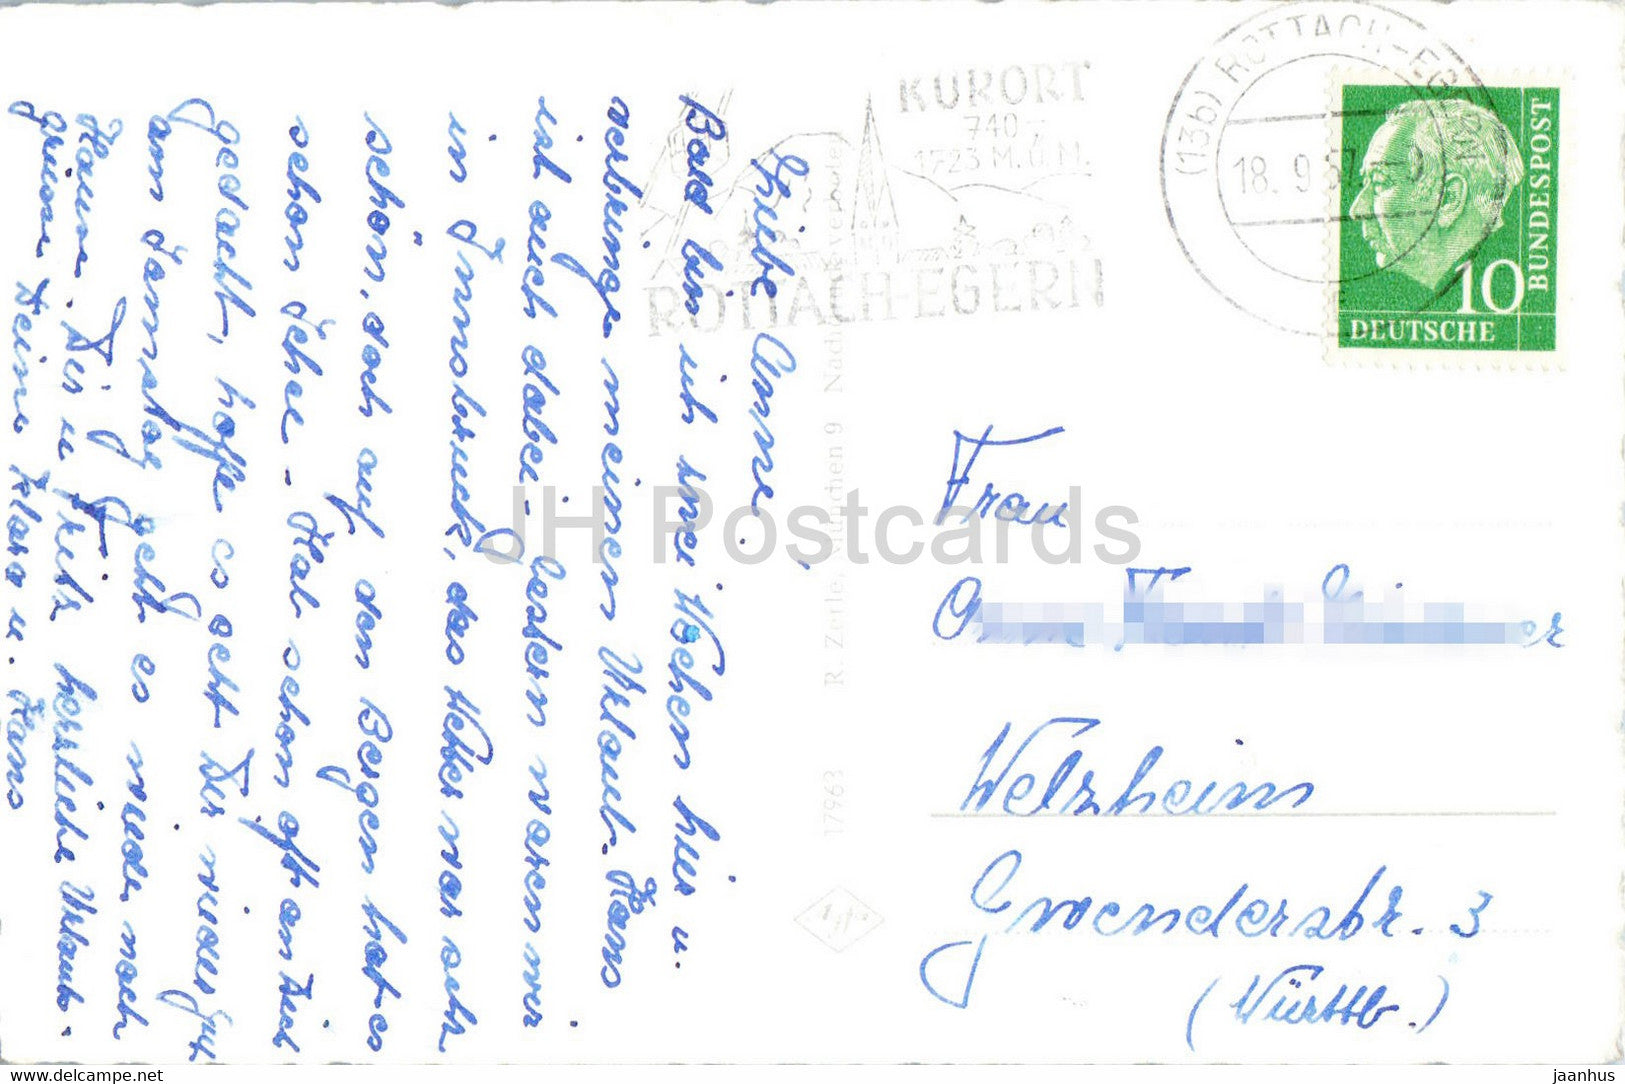 Liebe Anne!
Bald bin ich zwei Wochen hier u.
verbringe meinen Urlaub. Hans
ist auch dabei - gestern waren wir
in Innsbruck, das Wetter war sehr
schön, doch auf den Bergen hat es
schon Schnee - Hab schon oft an Dich
gedacht, hoffe es geht Dir wieder gut
am Samstag geht es wieder nach
Hause. Dir u. Fritz herzliche Urlaubs-
grüsse Deine Klara u. Hans
KURORT
740-
1723 M.ü.M.
ROTTACH-EGERN
(13b) ROTTACH-EGERN
18.9.57
DEUTSCHE
BUNDESPOST
10
R. Zerle, München 9 Nachdruck verboten
17963
Agfa
Frau
Welzheim
Gmoenderstr. 3
(Württb.)
JH Postcards
delcampe.net
jaanhus